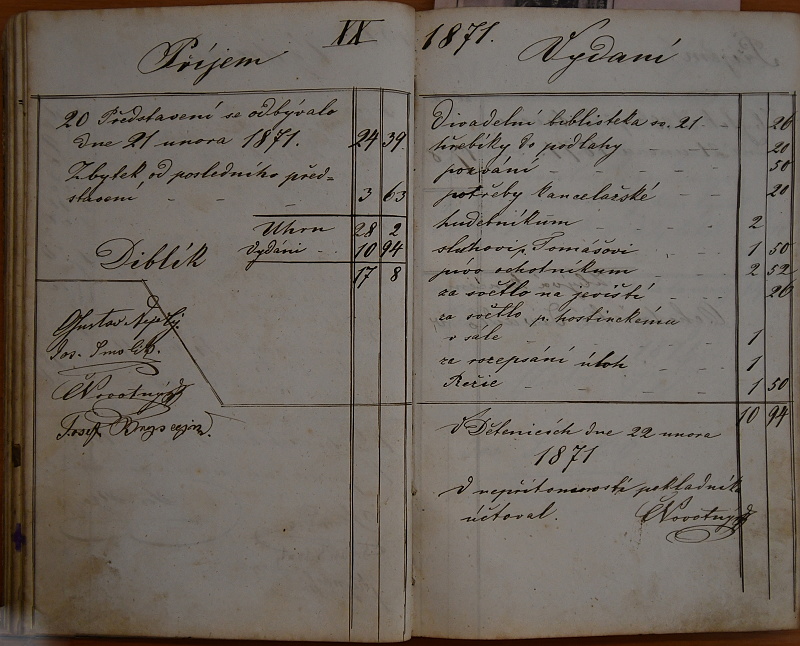 XX
Příjem
20 Představení se odbývalo
dne 21 unora 1871. 24 39
Zbytek od posledního před=
stavení - - - 3 63
Uhrn 28 2
Vydání - - 10 94
17 8
Diblík
Gustav
Jos. Smolík.
Novotný
Josef
1871.
Vydaní
Divadelní bibliotéka sv. 21 - 26
hřebíky do podlahy - - 20
pozvání - - - 50
potřeby kancelařské - 20
hudebníkum - - - 2
sluhovi p. Tomášovi - 1 50
pivo ochotníkum - - 2 52
za světlo na jevišti - - 26
za světlo p. hostinskému
v sále - - - 1
za rozepsání úloh - 1
Režie - - - 1 50
10 94
V Dětenicích dne 22 unora
1871
V nepřítomnosti pokladníka
účtoval. Novotný